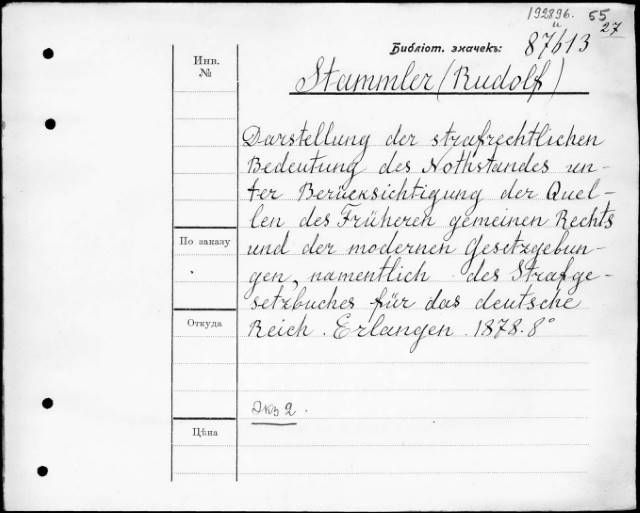 192896. 55
и 27
Библіот. значекъ: 87613
Инв.
№
Stammler (Rudolf)
Darstellung der strafrechtlichen
Bedeutung des Nothstandes un-
ter Berücksichtigung der Quel-
len des Früheren gemeinen Rechts
По заказу
und der modernen Gesetzgebun-
gen, namentlich des Strafge-
setzbuches für das deutsche
Откуда
Reich. Erlangen. 1878. 8°
Экз 2.
Цѣна